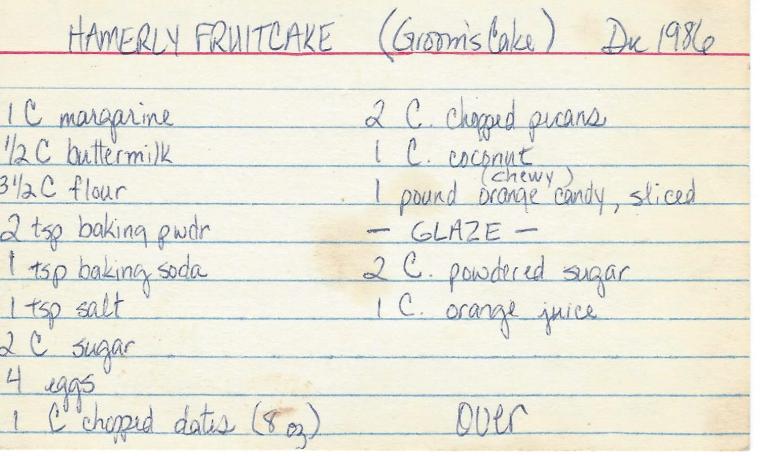 HAMERLY FRUITCAKE (Groom's Cake) Dec 1986
1 C margarine
1/2 C buttermilk
3 1/2 C flour
2 tsp baking pwdr
1 tsp baking soda
1 tsp salt
2 C sugar
4 eggs
1 C chopped dates (8 oz)
2 C. chopped pecans
1 C. coconut
(chewy)
1 pound orange candy, sliced
- GLAZE -
2 C. powdered sugar
1 C. orange juice
Over